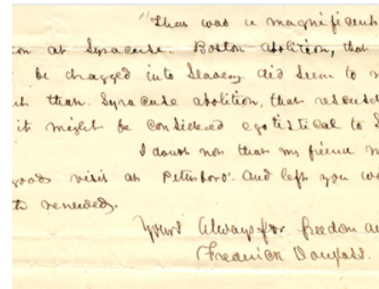 "There was a magnificent
on at Syracuse. Boston abolition, that
be dragged into Slavery did seem to m
ch than Syracuse abolition, that rescued
it might be considered egotistical to S
I doubt not that my friend m
good visit at Peterboro. And left you wi
th renewed.
Yours Always for freedom an
Frederick Douglass.